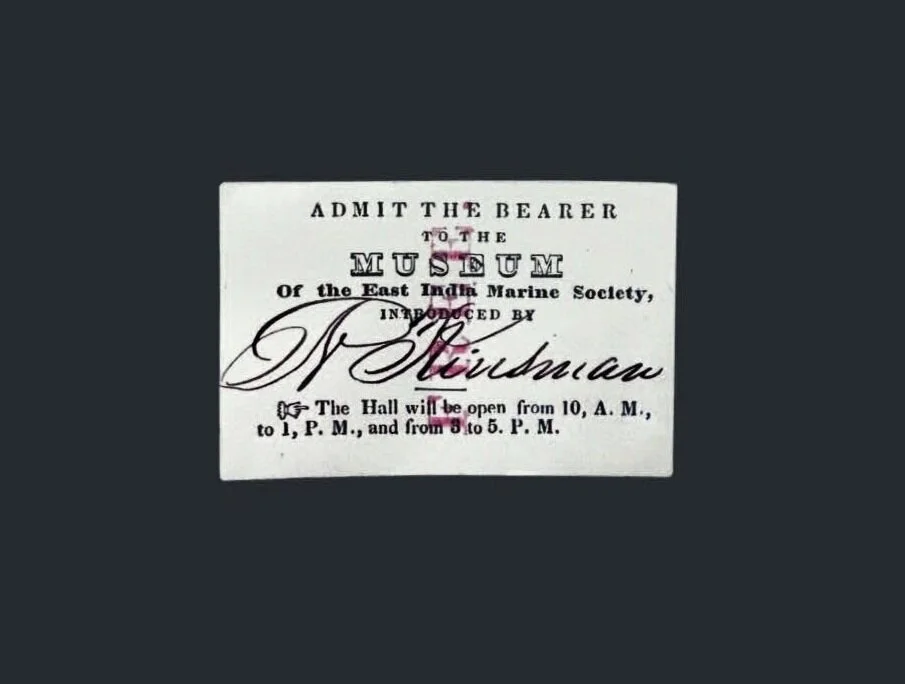 ADMIT THE BEARER
TO THE
MUSEUM
Of the East India Marine Society,
INTRODUCED BY
N Kinsman
☞ The Hall will be open from 10, A. M.,
to 1, P. M., and from 3 to 5. P. M.
FREE